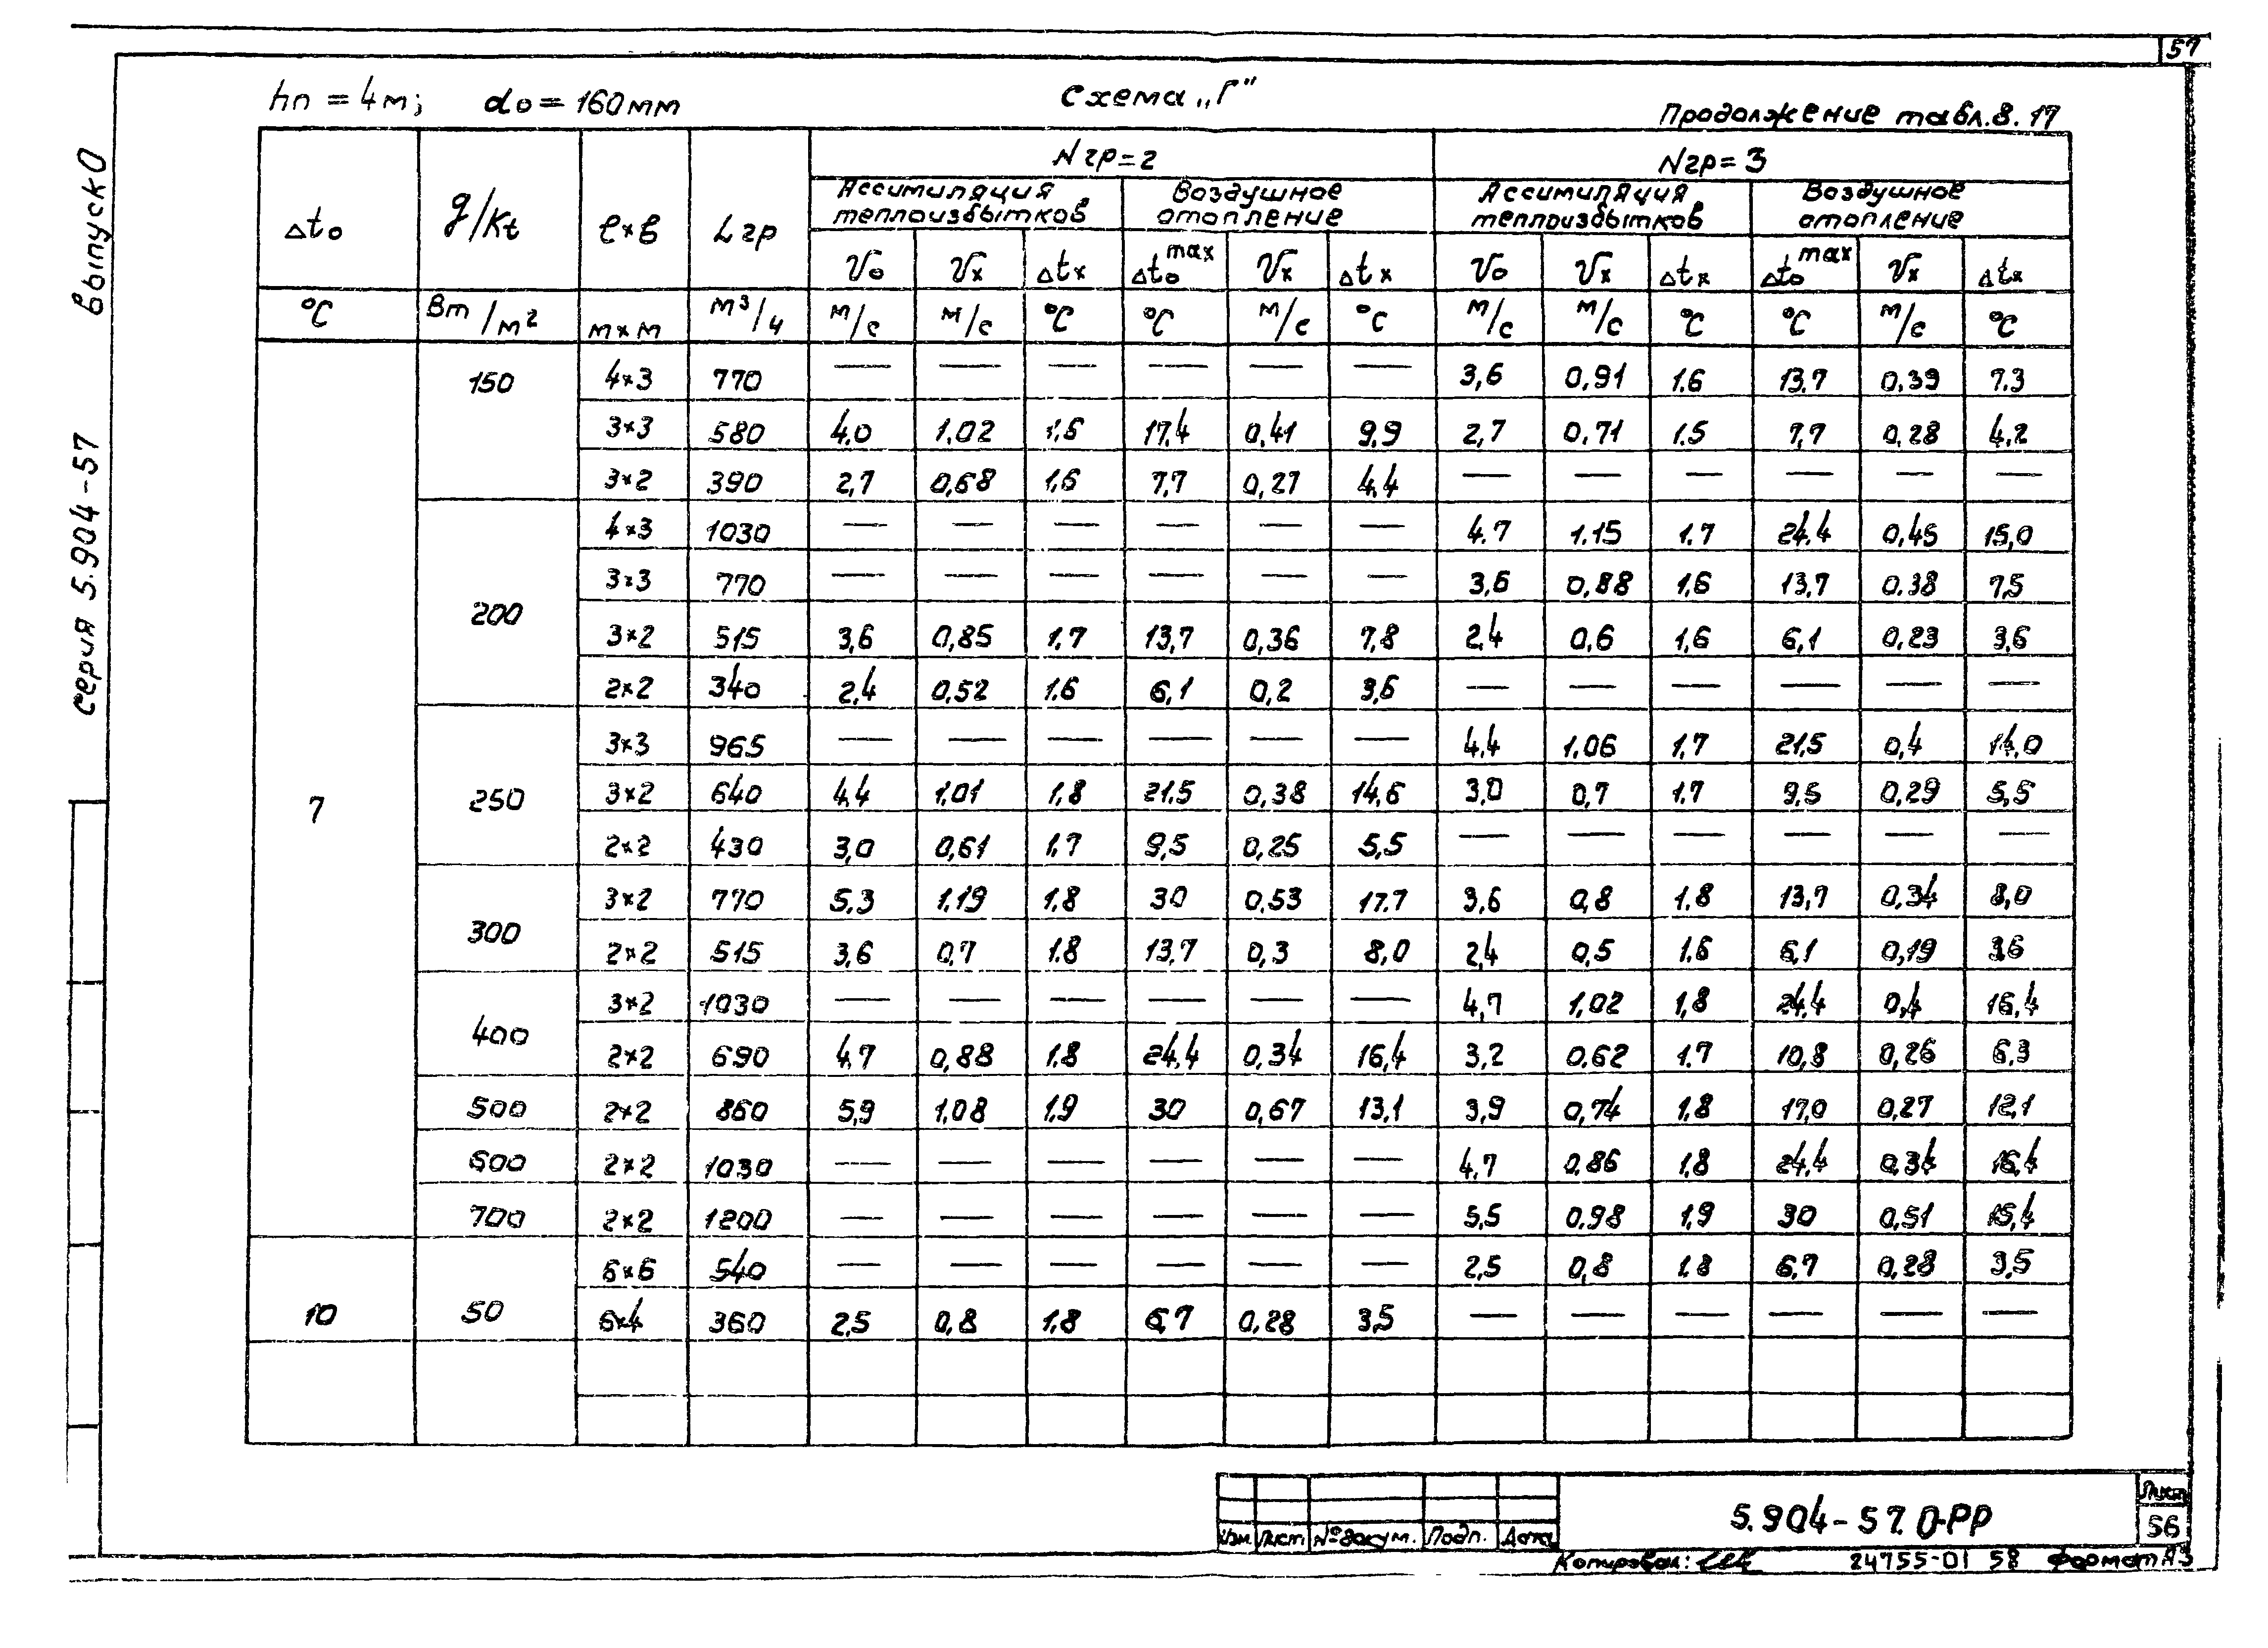 57
hп = 4м; dо = 160мм
Схема „Г"
Продолжение табл. 8.17
Выпуск 0
Серия 5.904-57
Δtо g/Kt ℓ×в Lгр Nгр=2 Nгр=3
Ассимиляция теплоизбытков Воздушное отопление Ассимиляция теплоизбытков Воздушное отопление
Vо Vх Δtх Δtо max Vх Δtх Vо Vх Δtх Δtо max Vх Δtх
°С Вт/м² м×м м³/ч м/с м/с °С °С м/с °С м/с м/с °С °С м/с °С
7 150 4×3 770 — — — — — — 3,6 0,91 1.6 13.7 0,39 7.3
3×3 580 4,0 1,02 1,6 17,4 0,41 9,9 2,7 0,71 1.5 7,7 0,28 4,2
3×2 390 2,7 0,68 1,6 7,7 0,27 4,4 — — — — — —
200 4×3 1030 — — — — — — 4.7 1.15 1.7 24.4 0,45 15,0
3×3 770 — — — — — — 3,6 0,88 1,6 13,7 0.38 7,5
3×2 515 3,6 0,85 1,7 13,7 0,36 7,8 2,4 0,6 1,6 6,1 0,23 3,6
2×2 340 2,4 0,52 1.6 6,1 0,2 3,6 — — — — — —
250 3×3 965 — — — — — — 4,4 1,06 1,7 21,5 0,4 14,0
3×2 640 4,4 1,01 1,8 21.5 0,38 14,6 3,0 0,7 1.7 9,5 0,29 5,5
2×2 430 3,0 0,61 1,7 9,5 0,25 5,5 — — — — — —
300 3×2 770 5,3 1,19 1,8 30 0,53 17.7 3,6 0,8 1.8 13,7 0,34 8,0
2×2 515 3,6 0,7 1.8 13,7 0,3 8,0 2,4 0,5 1.6 6,1 0,19 3,6
400 3×2 1030 — — — — — — 4,7 1,02 1,8 24,4 0,4 16,4
2×2 690 4,7 0,88 1,8 24,4 0,34 16,4 3,2 0,62 1.7 10,8 0,26 6,3
500 2×2 860 5,9 1,08 1,9 30 0,67 13,1 3,9 0,74 1,8 17,0 0,27 12,1
600 2×2 1030 — — — — — — 4,7 0,86 1,8 24,4 0,34 16,4
700 2×2 1200 — — — — — — 5,5 0,98 1,9 30 0,51 15,4
10 50 6×6 540 — — — — — — 2,5 0,8 1,8 6,7 0,28 3,5
6×4 360 2,5 0,8 1,8 6,7 0,28 3,5 — — — — — —
Изм. Лист № докум. Подп. Дата
5.904-57.0-РР
Лист
56
Копировал: 24755-01 58 Формат А3